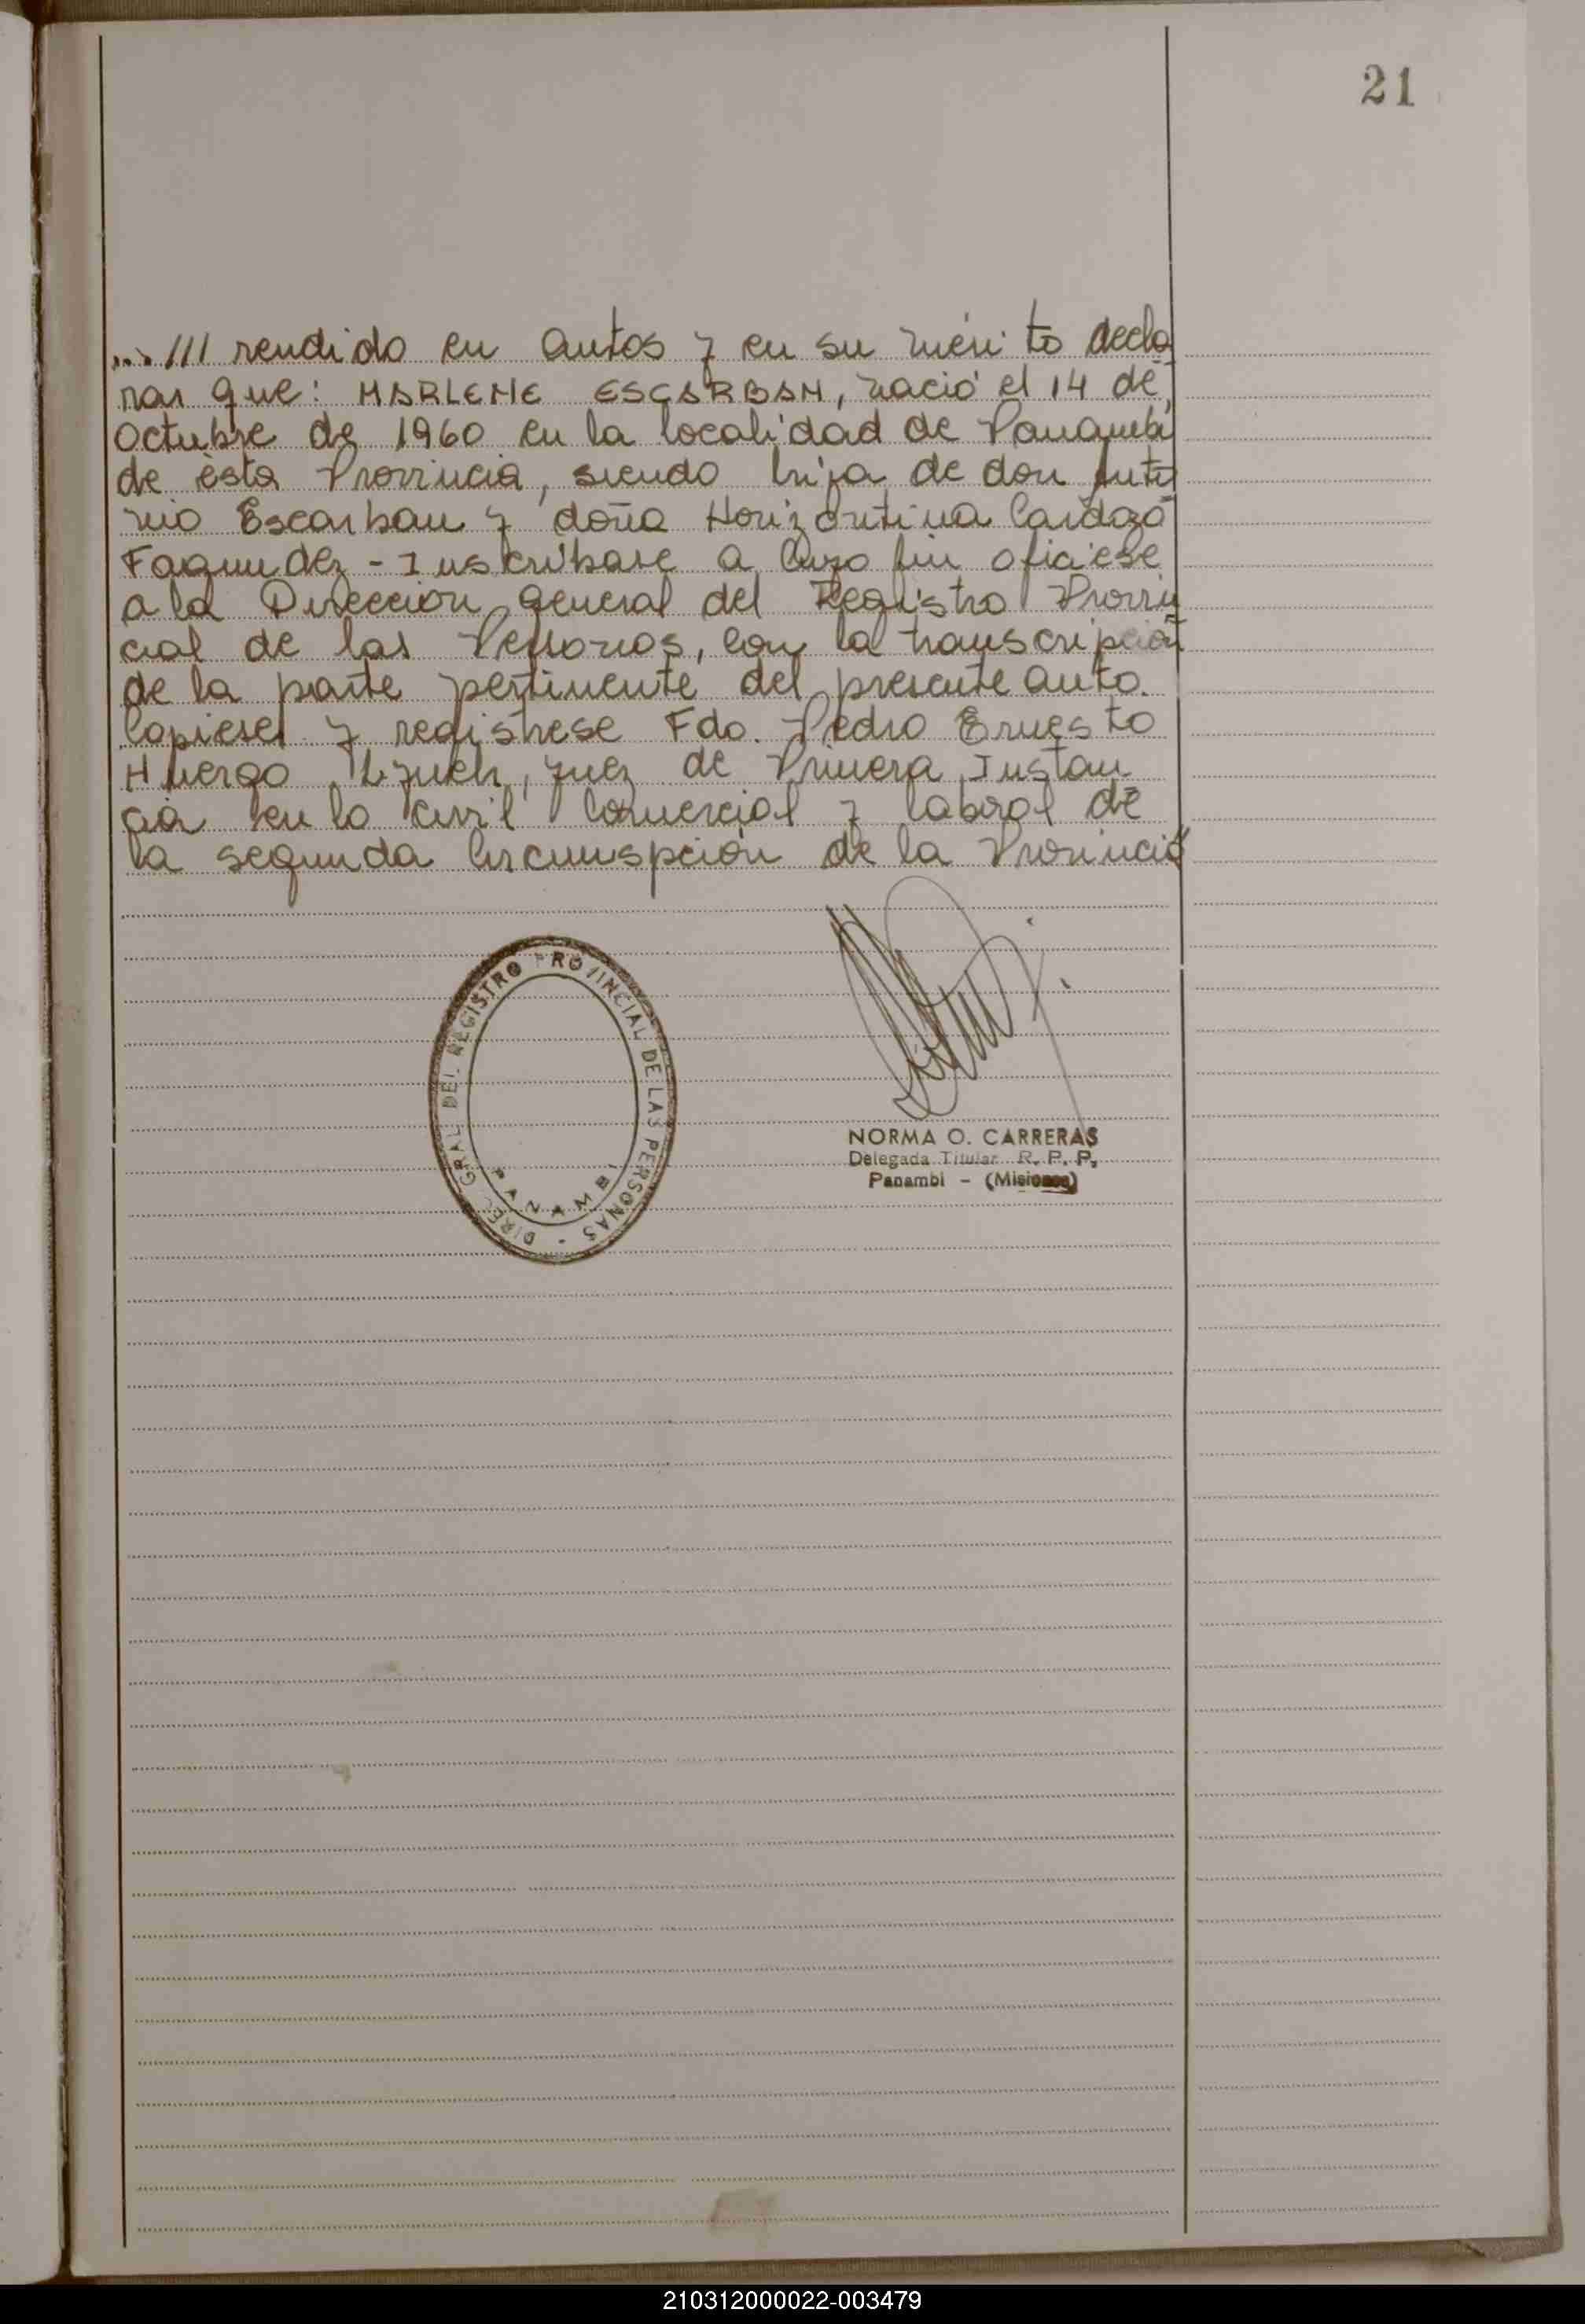 21
...III rendido en autos y en su mérito decla
rar que: MARLENE ESCARBAN, nació el 14 de
Octubre de 1960 en la localidad de Panambí
de ésta Provincia, siendo hija de don Anto
nio Escarban y doña Horizontina Cardozo
Fagundez - Inscríbase a cuyo fin ofíciese
a la Dirección general del Registro Provin
cial de las Personas, con la transcripción
de la parte pertinente del presente auto.
Copiese y regístrese Fdo. Pedro Ernesto
Huergo, Juez de Primera Instan
cia en lo Civil Comercial y laboral de
la segunda Circunspción de la Provincia
DIREC. GRAL DEL REGISTRO PROVINCIAL DE LAS PERSONAS -
PANAMBI
NORMA O. CARRERAS
Delegada Titular R. P. P.
Panambi - (Misiones)
210312000022-003479